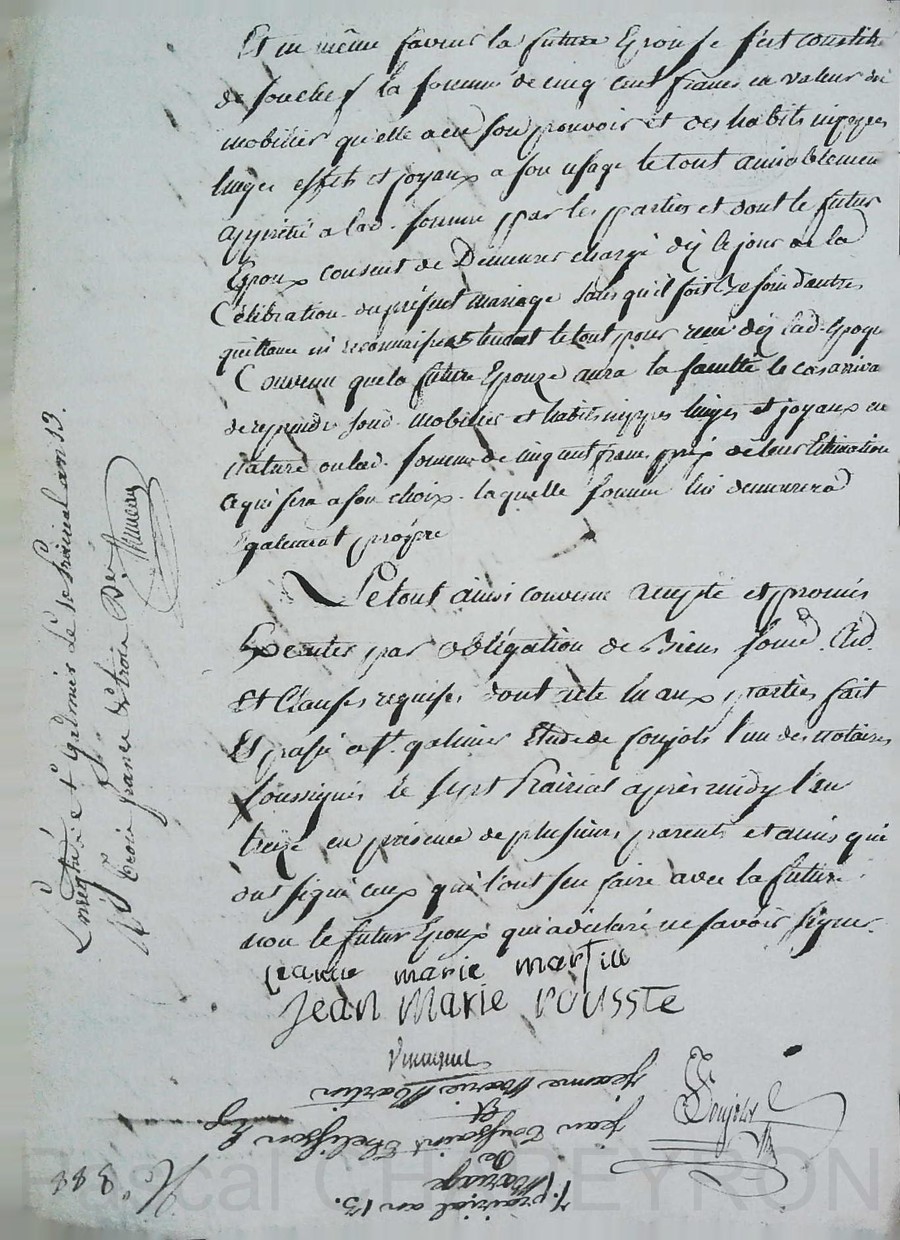 Et en même faveur la future Epouse s'est constitué
de son chef la somme de cinq cent francs en valeur du
mobilier qu'elle a en son pouvoir et des habits nippes
linges effets et joyaux a son usage le tout amiablement
apprétié a lad. somme par les parties et dont le futur
Epoux consent de Demeurer chargé dès le jour de la
Célébration du présent mariage sans qu'il soit besoin d'autre
quittance ni reconnaissance le tout pour dès lad. Epoque
Convenu que la future Epouze aura la faculté le cas arriva
de reprendre sond. mobilier et habits nippes linges et joyaux en
nature ou lad. somme de cinq cent francs prix de leur Estimation
ce qui sera a son choix laquelle somme lui demeurera
Egalement propre
Le tout ainsi convenu accepté et promis
Exécuter par obligation de Biens soumd.
Et Clauses requises dont acte lu aux parties fait
Et passé a St. galmier Etude de Coujols l'un des notaires
soussignés le sept Prairial après midy l'an
treize en présence de plusieurs parents et amis qui
ont signé ceux qui l'ont seu faire avec la future
non le futur Epoux qui a déclaré ne savoir signer.
jeanne marie martin
Jean Marie rousste
Coujols
Enregistré à St galmier le 16 prairial an 13.
trois francs
7. prairial an 13.
Mariage
de
jean Toussaint
Et
jeanne Marie Martin
No. 388
Pascal CHAPEYRON